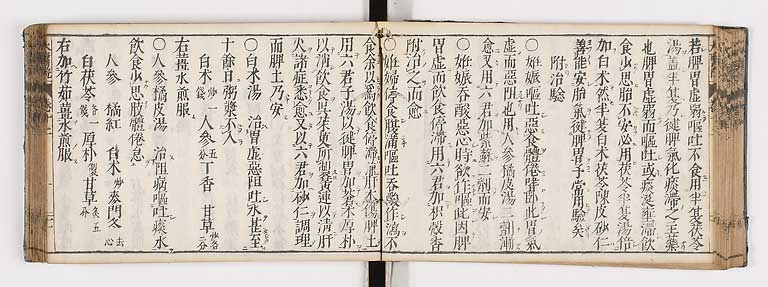 若脾胃虛弱嘔吐不食用半茯苓
湯蓋半夏乃健脾氣化痰滯之主藥
也脾胃虛弱而嘔吐或痰涎壅滯飲
食少思胎不安必用茯苓半夏湯倍
加白朮然半夏白朮茯苓陳皮砂仁
善能安胎氣健脾胃予常用驗矣
附治驗
○妊娠嘔吐惡食體倦嗜卧此胃氣
虛而惡阻也用人參橘皮湯二劑漸
愈又用六君加紫蘇二劑而安
○妊娠吞酸惡心時欲作嘔此因脾
胃虛而飲食停滯用六君加枳殼香
附治之而愈
○妊婦停食腹滿嘔吐吞酸作瀉不
食余以爲飲食停滯兼肝木傷脾土
用六君子湯以健脾胃加蒼朮厚朴
以消飲食吳茱萸所製黃連以清肝
火諸症悉愈又以六君加砂仁調理
而脾土乃安
○白朮湯 治胃虛惡阻吐水甚至
十餘日粥漿不入
白朮 人參 丁香 甘草
右薑水煎服
○人參橘皮湯 治阻病嘔吐痰水
飲食少思肢體倦怠
人參 橘紅 白朮炒 麥門冬去心
白茯苓 厚朴製 甘草炙五分
右加竹茹薑水煎服